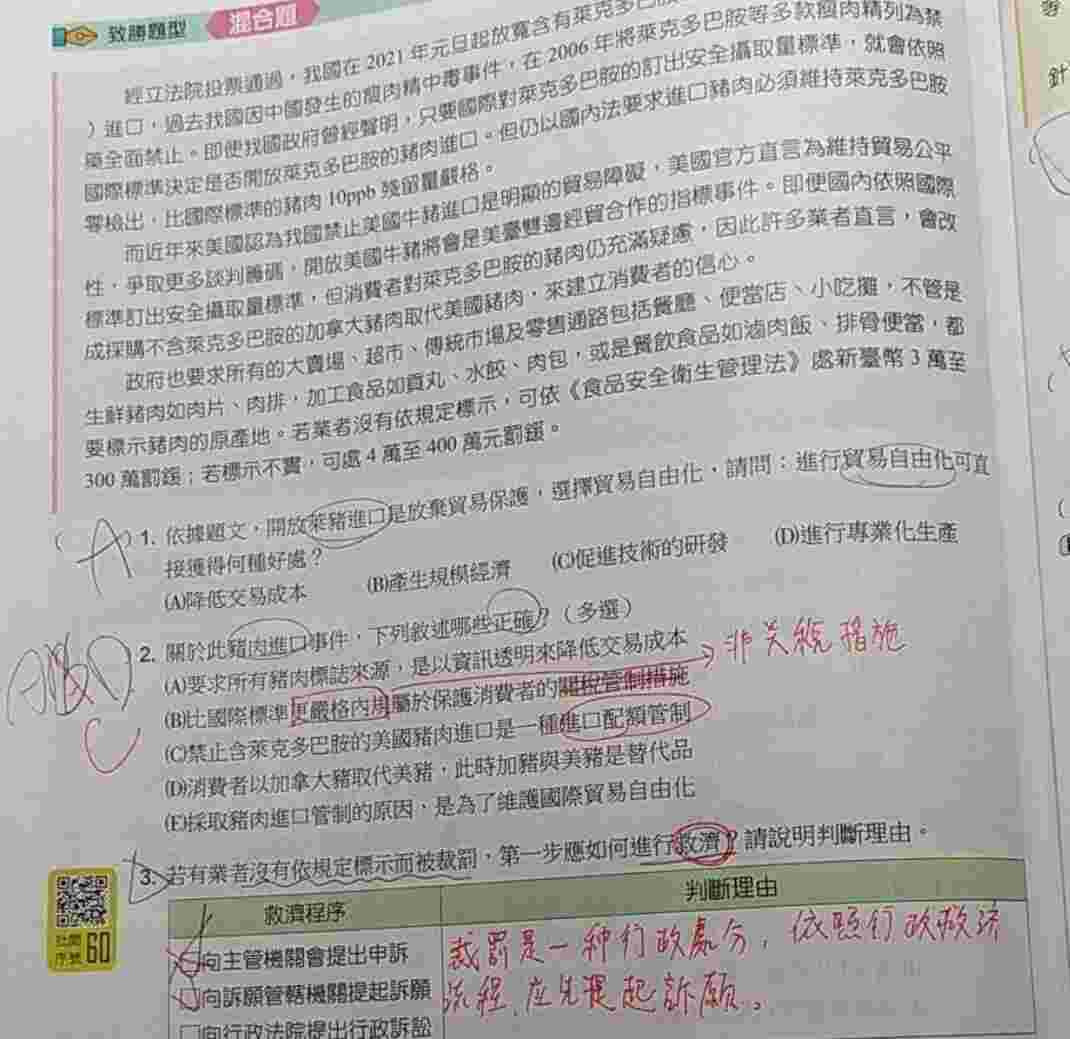 致勝題型 混合題
經立法院投票通過,我國在 2021 年元旦起放寬含有萊克多巴胺
)進口,過去我國因中國發生的瘦肉精中毒事件,在 2006 年將萊克多巴胺等多款瘦肉精列為禁
藥全面禁止。即使我國政府曾經聲明,只要國際對萊克多巴胺的訂出安全攝取量標準,就會依照
國際標準決定是否開放萊克多巴胺的豬肉進口。但仍以國內法要求進口豬肉必須維持萊克多巴胺
零檢出,比國際標準的豬肉 10ppb 殘留量嚴格。
而近年來美國認為我國禁止美國牛豬進口是明顯的貿易障礙,美國官方直言為維持貿易公平
性,爭取更多談判籌碼,開放美國牛豬將會是美臺雙邊經貿合作的指標事件。即便國內依照國際
標準訂出安全攝取量標準,但消費者對萊克多巴胺的豬肉仍充滿疑慮,因此許多業者直言,會改
成採購不含萊克多巴胺的加拿大豬肉取代美國豬肉,來建立消費者的信心。
政府也要求所有的大賣場、超市、傳統市場及零售通路包括餐廳、便當店、小吃攤,不管是
生鮮豬肉如肉片、肉排,加工食品如貢丸、水餃、肉包,或是餐飲食品如滷肉飯、排骨便當,都
要標示豬肉的原產地。若業者沒有依規定標示,可依《食品安全衛生管理法》處新臺幣 3 萬至
300 萬罰鍰;若標示不實,可處 4 萬至 400 萬元罰鍰。
( A ) 1. 依據題文,開放萊豬進口是放棄貿易保護,選擇貿易自由化,請問:進行貿易自由化可直
接獲得何種好處?
(A)降低交易成本 (B)產生規模經濟 (C)促進技術的研發 (D)進行專業化生產
2. 關於此豬肉進口事件,下列敘述哪些正確?(多選)
(A)要求所有豬肉標誌來源,是以資訊透明來降低交易成本 → 非關稅措施
(B)比國際標準更嚴格內規屬於保護消費者的關稅管制措施
C
(C)禁止含萊克多巴胺的美國豬肉進口是一種進口配額管制
(D)消費者以加拿大豬取代美豬,此時加豬與美豬是替代品
(E)採取豬肉進口管制的原因,是為了維護國際貿易自由化
3. 若有業者沒有依規定標示而被裁罰,第一步應如何進行救濟?請說明判斷理由。
救濟程序 判斷理由
□向主管機關會提出申訴
□向訴願管轄機關提起訴願
□向行政法院提出行政訴訟
裁罰是一種行政處分,依照行政救濟
流程,應先提起訴願。
社閱
序號 60
針